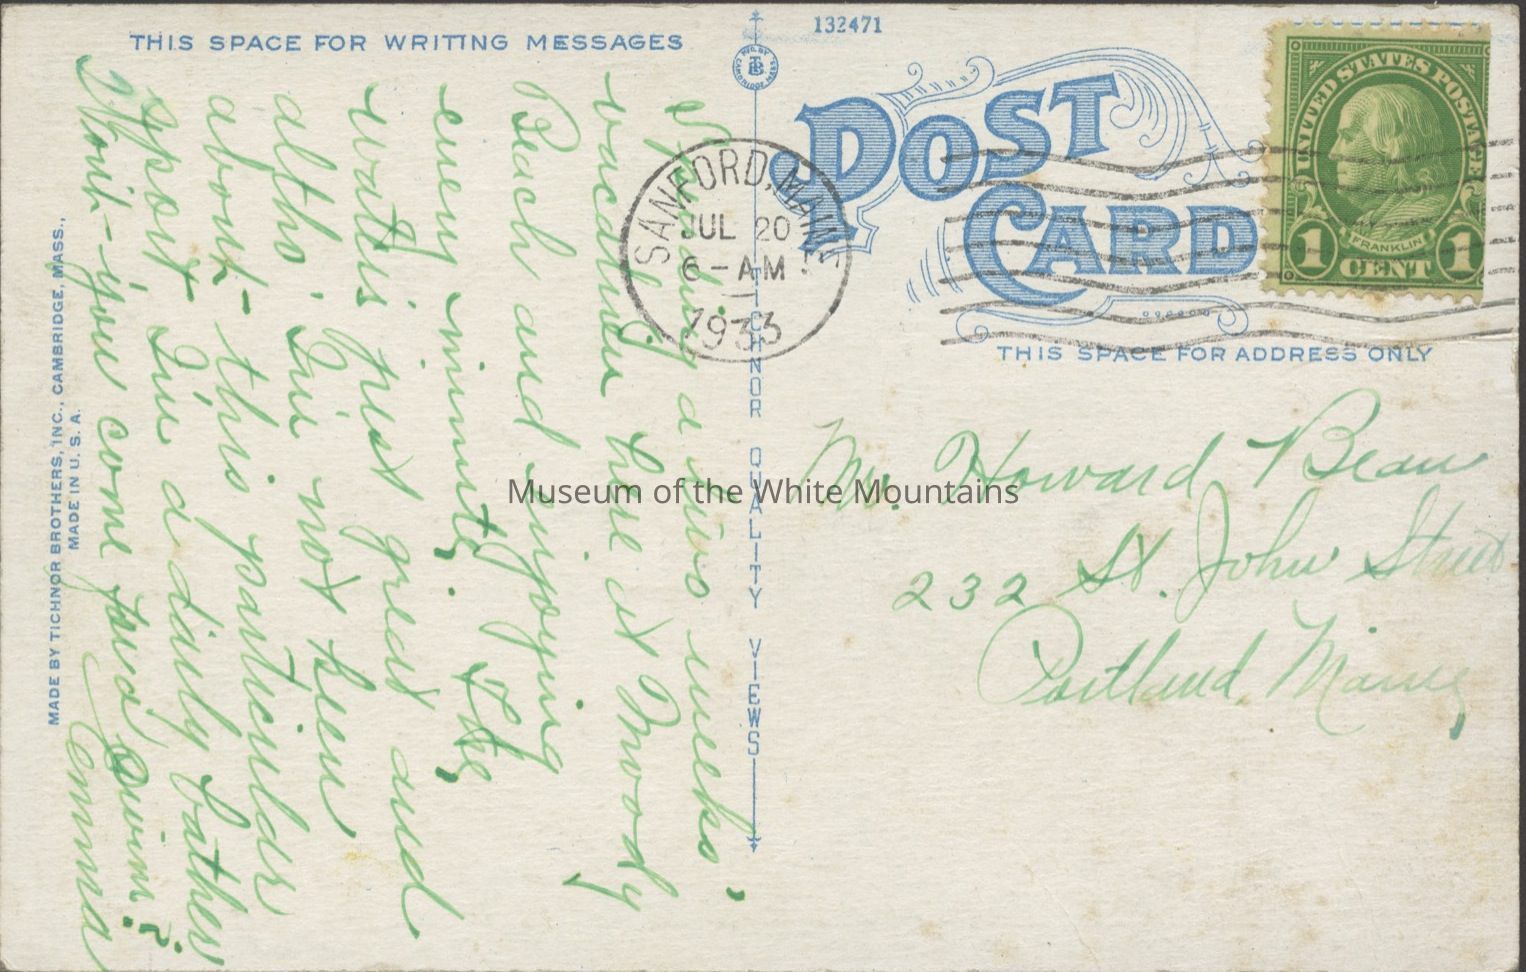 THIS SPACE FOR WRITING MESSAGES
Spending a two weeks'
vacation here at Moody
Beach and enjoying
every minute. The
water's just great and
altho' I'm not keen
about this particular
sport I'm a daily bather
Won't you come for a swim?
Emma
MADE BY TICHNOR BROTHERS, INC., CAMBRIDGE, MASS.,
MADE IN U. S. A.
MFG. BY
TB
CAMBRIDGE MASS
TICHNOR QUALITY VIEWS
132471
POST
CARD
SANFORD, MAINE
JUL 20
6-AM
1933
UNITED STATES POSTAGE
FRANKLIN
1 CENT 1
THIS SPACE FOR ADDRESS ONLY
Mr. Howard Bean
232 St. John Street
Portland, Maine,
Museum of the White Mountains